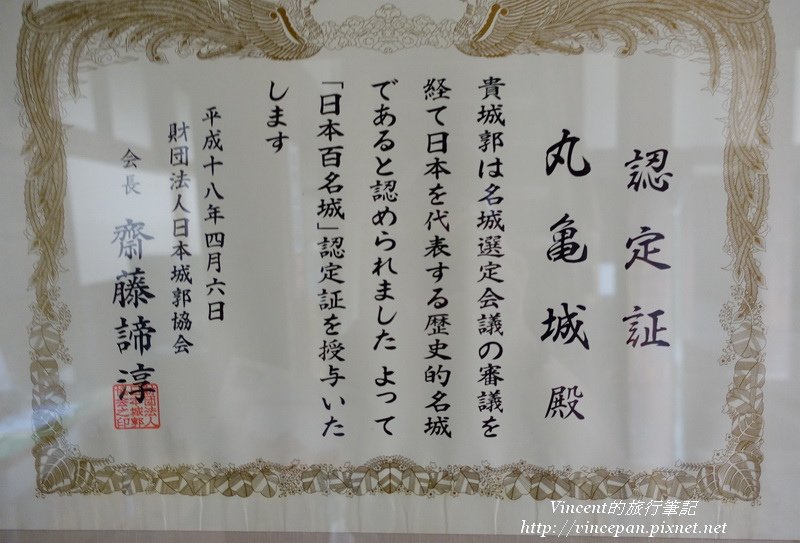 認定証
丸亀城殿
貴城郭は名城選定会議の審議を
経て日本を代表する歴史的名城
であると認められました よって
「日本百名城」認定証を授与いた
します
平成十八年四月六日
財団法人日本城郭協会
会長 齋藤諦淳
Vincent的旅行筆記
http://vincepan.pixnet.net